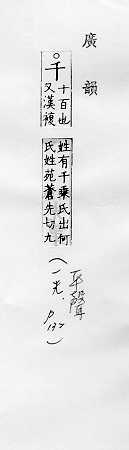 廣韻
○千
十百也
又漢複
姓有千乘氏出何
氏姓苑蒼先切九
(一先.
平聲
P132)